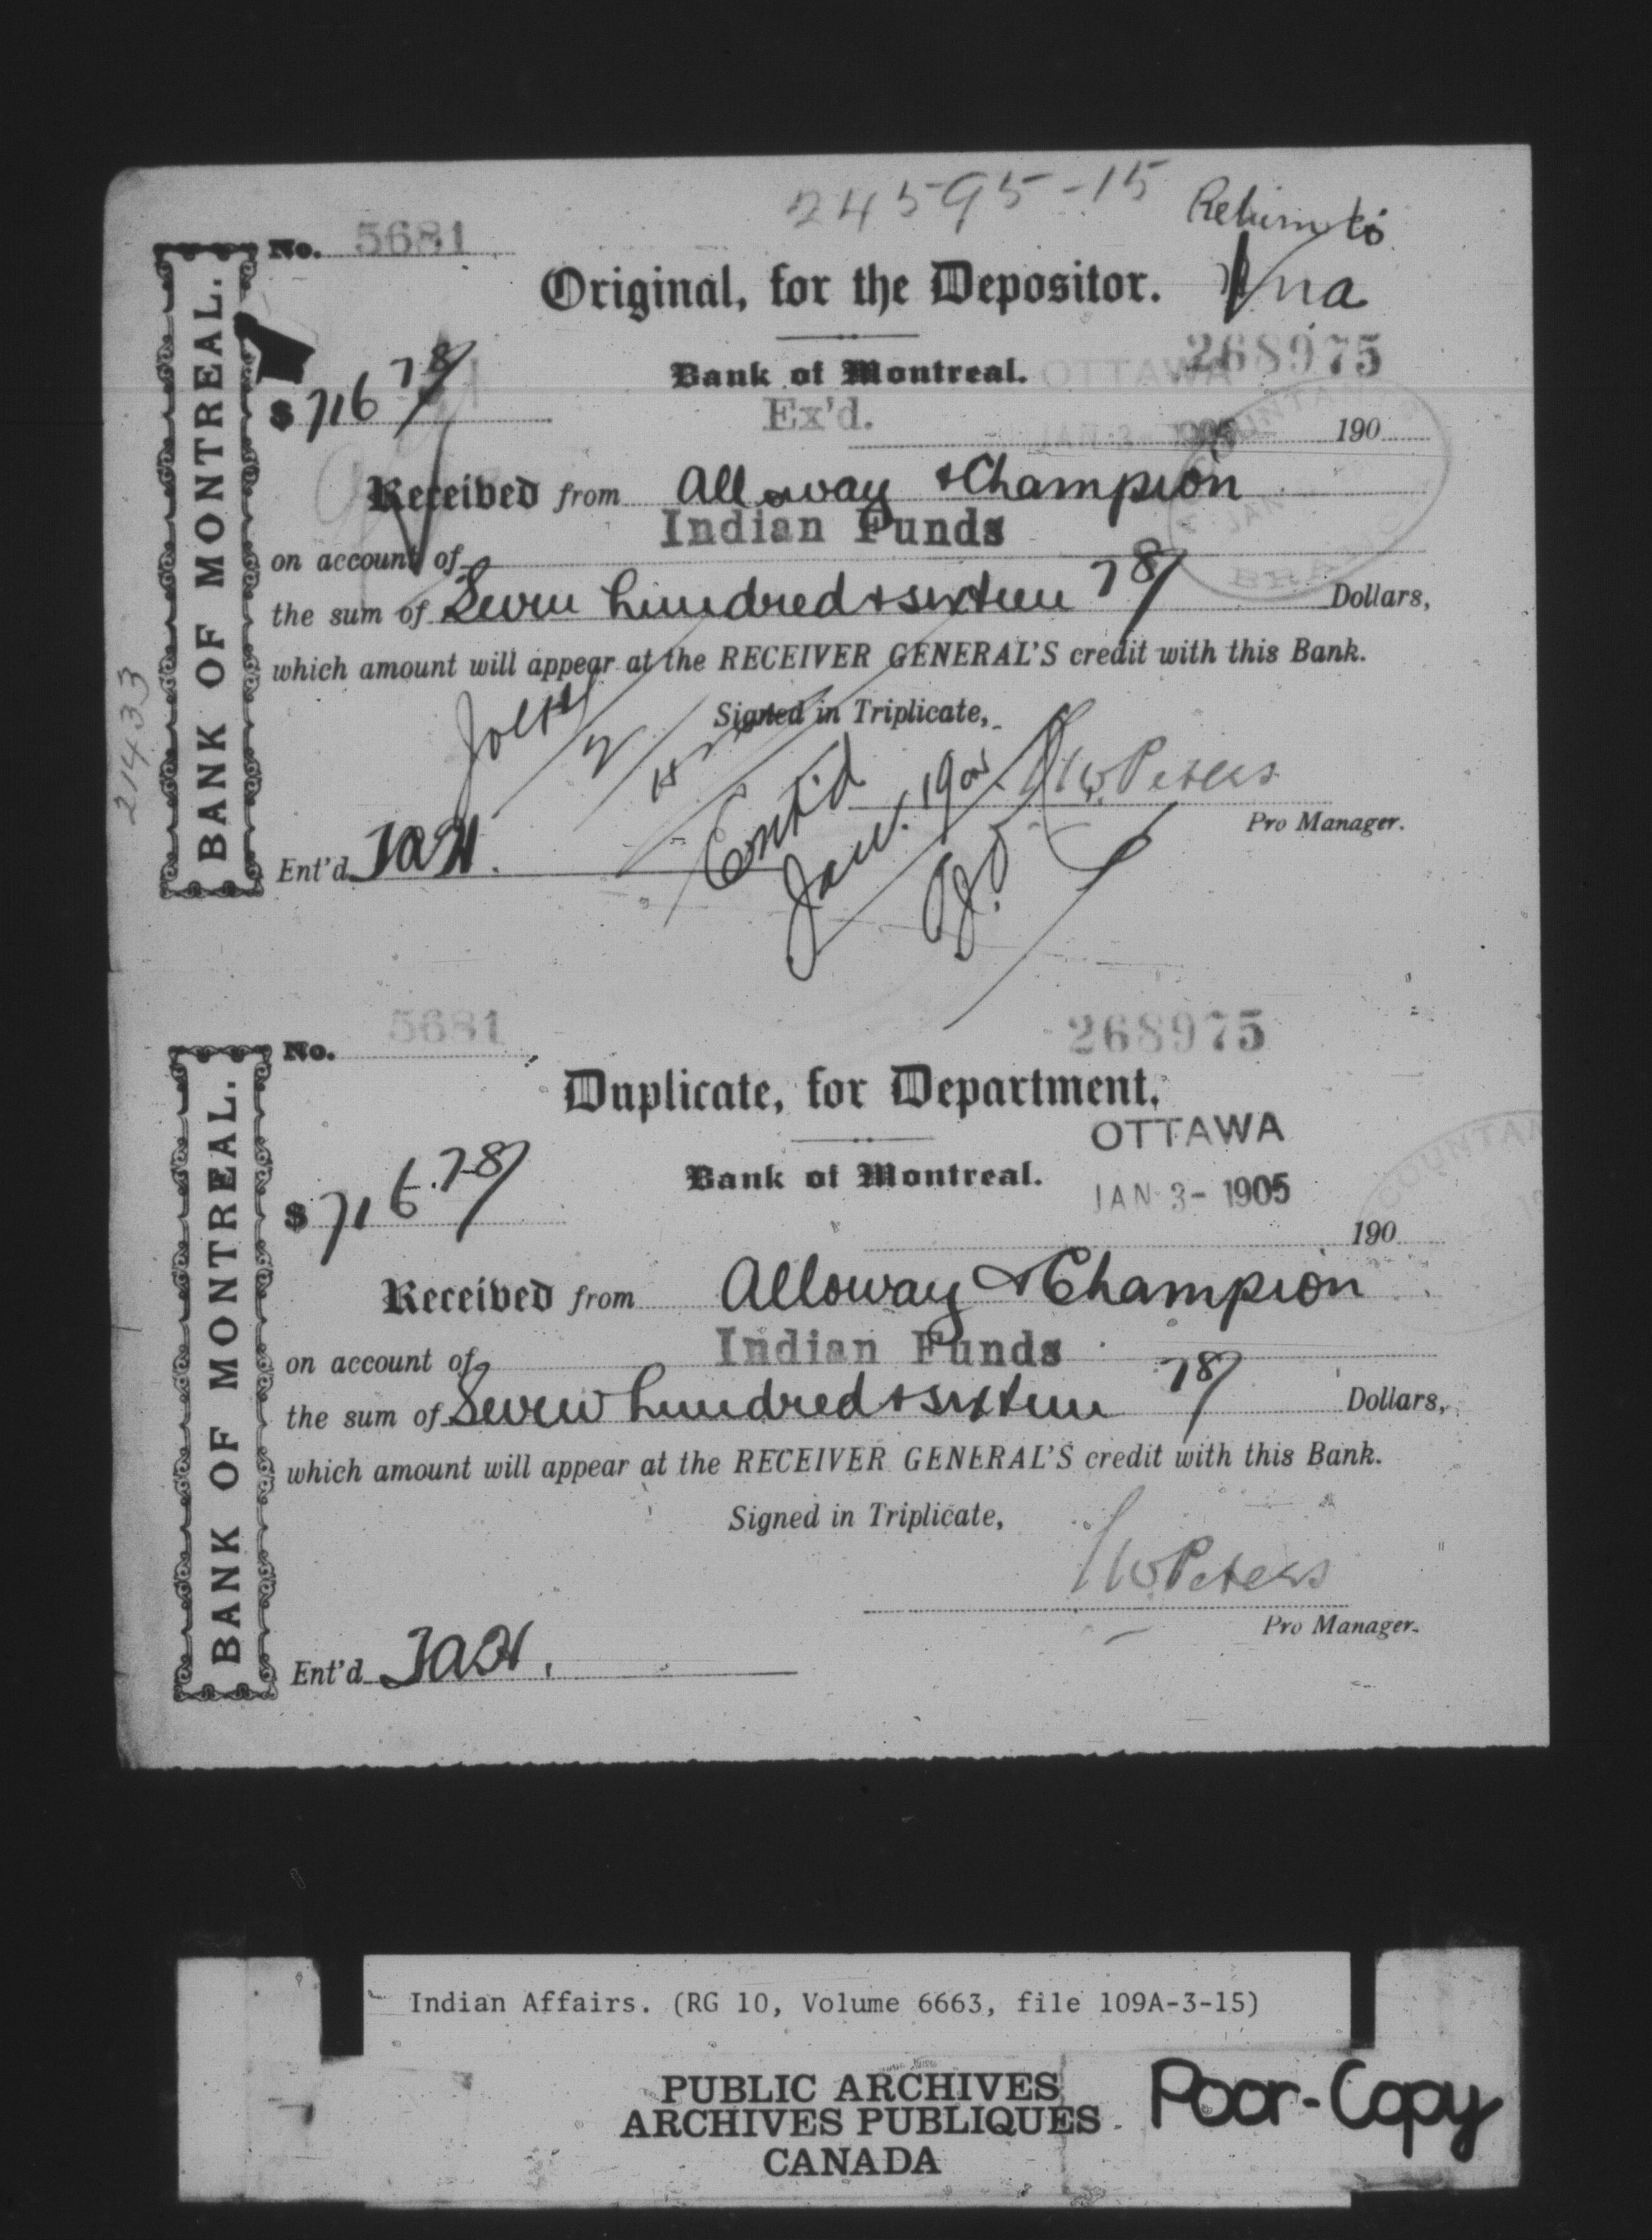 24595-15
Return to
No. 5681
Original, for the Depositor.
268975
$716 78/
Bank of Montreal.
OTTAWA
Ex'd.
JAN 3- 1905
190
Received from Alloway & Champion
Indian Funds
on account of
the sum of Seven hundred & sixteen 78/ Dollars,
which amount will appear at the RECEIVER GENERAL'S credit with this Bank.
Signed in Triplicate,
W. Peters
Pro Manager.
Ent'd
Ent'd
Jan. 1905
BANK OF MONTREAL.
21433
5681
268975
No.
Duplicate, for Department.
OTTAWA
$716.78/
Bank of Montreal.
JAN 3- 1905
190
Received from Alloway & Champion
Indian Funds
on account of
the sum of Seven hundred & sixteen 78/ Dollars,
which amount will appear at the RECEIVER GENERAL'S credit with this Bank.
Signed in Triplicate,
W Peters
Pro Manager.
Ent'd
BANK OF MONTREAL.
Indian Affairs. (RG 10, Volume 6663, file 109A-3-15)
PUBLIC ARCHIVES
ARCHIVES PUBLIQUES
CANADA
Poor-Copy